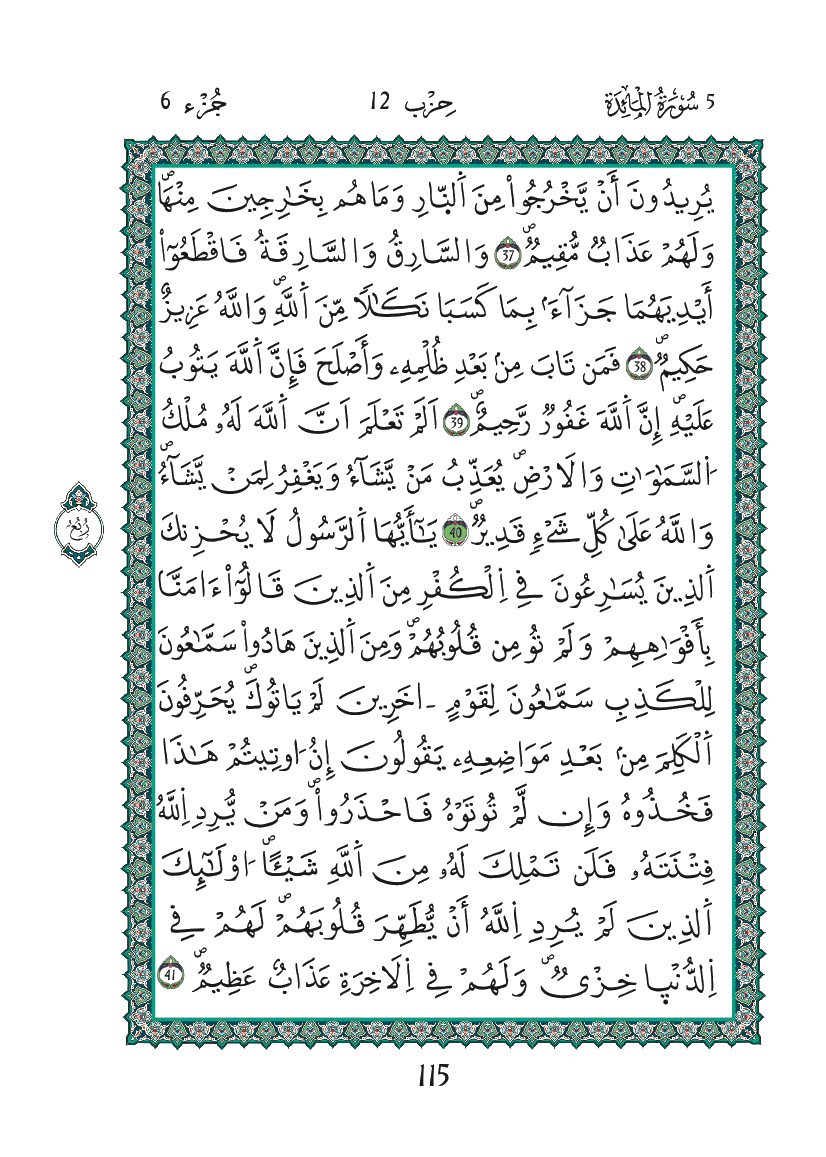 5 سُورَةُ الْمَائِدَة حِزْب 12 جُزْء 6
يُرِيدُونَ أَنْ يَّخْرُجُواْ مِنَ اَ۬لنّ۪ارِ وَمَا هُم بِخَٰرِجِينَ مِنْهَاۖ
وَلَهُمْ عَذَابٞ مُّقِيمٞۖ 37 وَالسَّارِقُ وَالسَّارِقَةُ فَاقْطَعُوٓاْ
أَيْدِيَهُمَا جَزَآءَۢ بِمَا كَسَبَا نَكَٰلاٗ مِّنَ اَ۬للَّهِۖ وَاللَّهُ عَزِيزٌ
حَكِيمٞۖ 38 فَمَن تَابَ مِنۢ بَعْدِ ظُلْمِهِۦ وَأَصْلَحَ فَإِنَّ اَ۬للَّهَ يَتُوبُ
عَلَيْهِۖ إِنَّ اَ۬للَّهَ غَفُورٞ رَّحِيمٌۖ 39 اَلَمْ تَعْلَمَ اَنَّ اَ۬للَّهَ لَهُۥ مُلْكُ
اُ۬لسَّمَٰوَٰتِ وَالَارْضِۖ يُعَذِّبُ مَنْ يَّشَآءُ وَيَغْفِرُ لِمَنْ يَّشَآءُۖ
وَاللَّهُ عَلَىٰ كُلِّ شَےْءٖ قَدِيرٞۖ 40 يَٰٓأَيُّهَا اَ۬لرَّسُولُ لَا يُحْزِنكَ
اَ۬لذِينَ يُسَٰرِعُونَ فِے اِ۬لْكُفْرِ مِنَ اَ۬لذِينَ قَالُوٓاْ ءَامَنَّا
بِأَفْوَٰهِهِمْ وَلَمْ تُومِن قُلُوبُهُمْۖ وَمِنَ اَ۬لذِينَ هَادُواْ سَمَّٰعُونَ
لِلْكَذِبِ سَمَّٰعُونَ لِقَوْمٍ ـ اخَرِينَ لَمْ يَاتُوكَۖ يُحَرِّفُونَ
اَ۬لْكَلِمَ مِنۢ بَعْدِ مَوَاضِعِهِۦ يَقُولُونَ إِنُ اوتِيتُمْ هَٰذَا
فَخُذُوهُ وَإِن لَّمْ تُوتَوْهُ فَاحْذَرُواْۖ وَمَنْ يُّرِدِ اِ۬للَّهُ
فِتْنَتَهُۥ فَلَن تَمْلِكَ لَهُۥ مِنَ اَ۬للَّهِ شَيْـٔاًۖ ا۟وْلَٰٓئِكَ
اَ۬لذِينَ لَمْ يُرِدِ اِ۬للَّهُ أَنْ يُّطَهِّرَ قُلُوبَهُمْۖ لَهُمْ فِے
اِ۬لدُّنْي۪ا خِزْيٞۖ وَلَهُمْ فِے اِ۬لَاخِرَةِ عَذَابٌ عَظِيمٞۖ 41
رُبُعُ
115